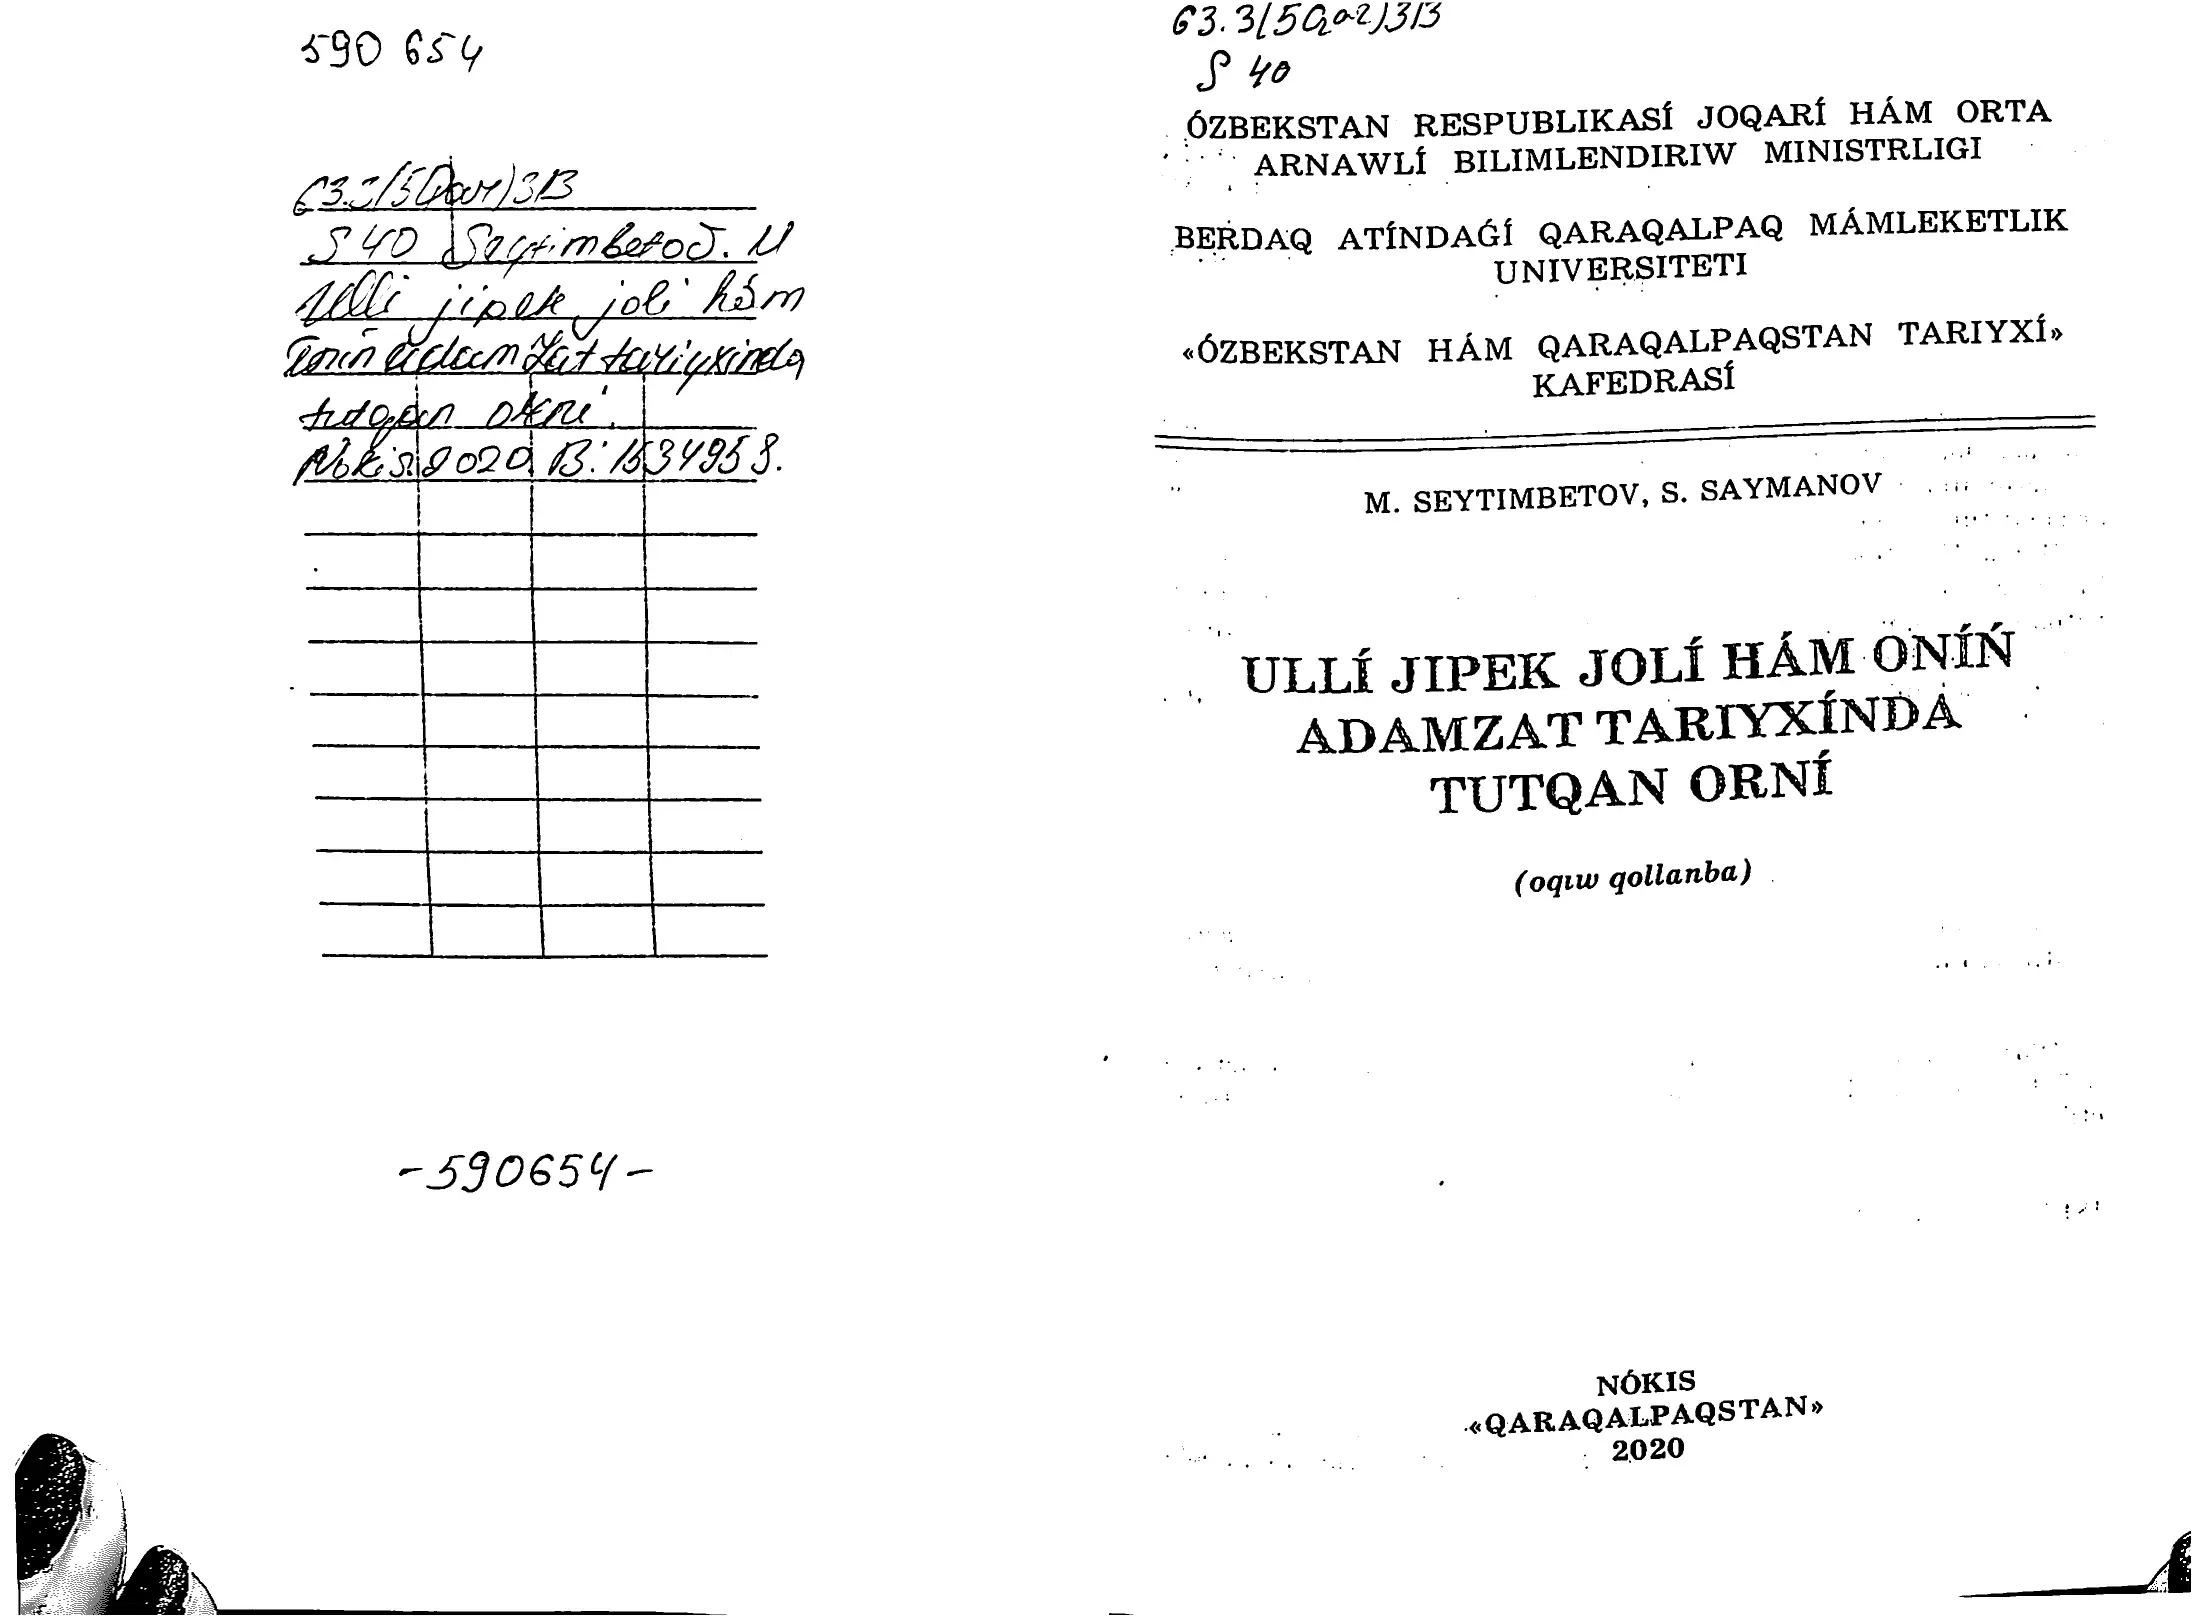 590 654
63.3(5Qar)3B
S 40 Seytimbetov. M
Ullí jipek jolí hám
onıń adamzat tariyxında
tutqan orní.
Nókis 2020 B: 15349538.
-590654-
63.3(5Qar)3B
S 40
ÓZBEKSTAN RESPUBLIKASÍ JOQARÍ HÁM ORTA
ARNAWLÍ BILIMLENDIRIW MINISTRLIGI
BERDAQ ATÍNDAǴÍ QARAQALPAQ MÁMLEKETLIK
UNIVERSITETI
«ÓZBEKSTAN HÁM QARAQALPAQSTAN TARIYXÍ»
KAFEDRASÍ
M. SEYTIMBETOV, S. SAYMANOV
ULLÍ JIPEK JOLÍ HÁM ONÍŃ
ADAMZAT TARIYXÍNDA
TUTQAN ORNÍ
(oqıw qollanba)
NÓKIS
«QARAQALPAQSTAN»
2020